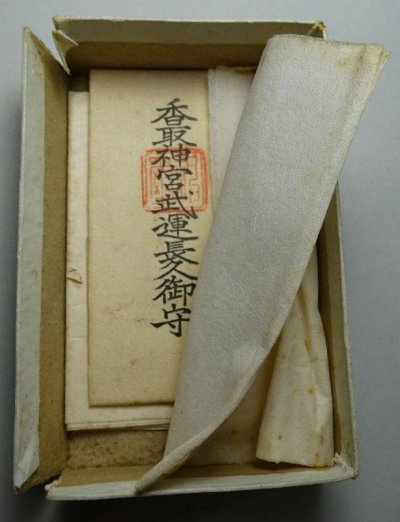 香取神宮武運長久御守